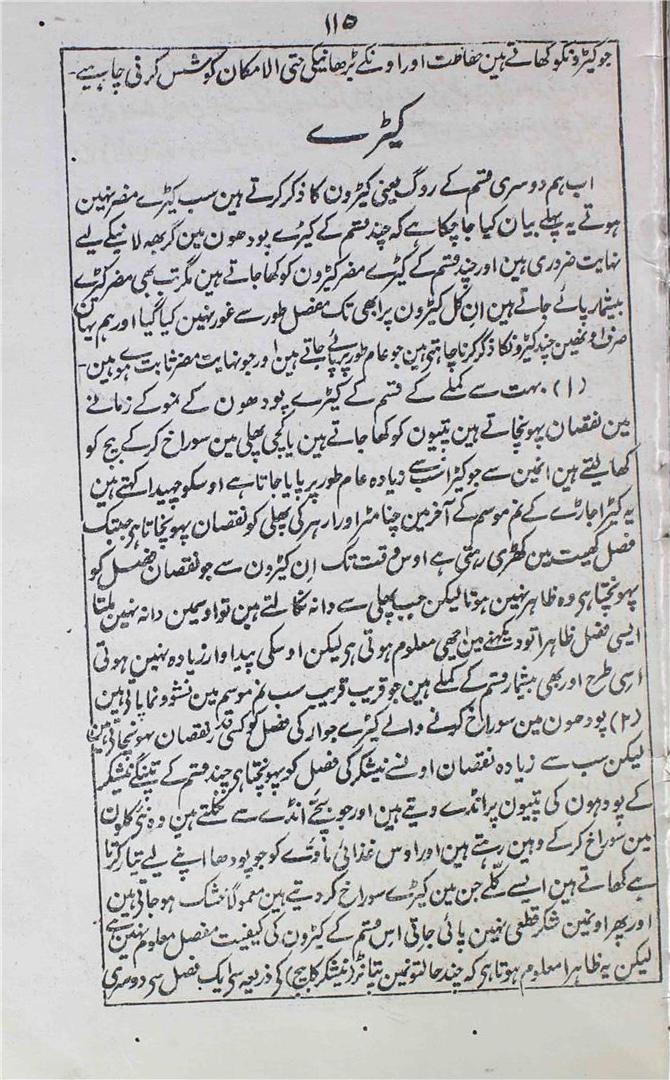 ۱۱۵
جو کیڑونکو کھاتے ہین حفاظت اور اونکے بڑھانیکی حتی الامکان کوشش کرنی چاہیے۔
کیڑے
اب ہم دوسری قسم کے روگ یعنی کیڑون کا ذکر کرتے ہین سب کیڑے مضر نہین
ہوتے یہ پہلے بیان کیا جا چکا ہے کہ چند قسم کے کیڑے پودھون مین گربھہ لانیکے لیے
نہایت ضروری ہین اور چند قسم کے کیڑے مضر کیڑون کو کھا جاتے ہین مگر تب بھی مضر کیڑے
بیشمار پائے جاتے ہین اِن کل کیڑون پر ابھی تک مفصل طور سے غور نہین کیا گیا اور ہم یہان
صرف اونھین چند کیڑونکا ذکر کرنا چاہتے ہین جو عام طور پر پائے جاتے ہین اور جو نہایت مضر ثابت ہوے ہین۔
(۱) بہت سے کملے کے قسم کے کیڑے پودھون کے نمو کے زمانے
مین نقصان پہونچاتے ہین پتیون کو کھا جاتے ہین یا کچی پھلی مین سوراخ کرکے بیج کو
کھا لیتے ہین انمین سے جو کیڑا سب سے زیادہ عام طور پر پایا جاتا ہے اوسکو چھیدا کہتے ہین
یہ کیڑا جاڑے کے نم موسم کے آخر مین چنا مٹر اور ارہر کی پھلی کو نقصان پہونچاتا ہی جبتک
فصل کھیت مین کھڑی رہتی ہے اوس وقت تک اِن کیڑون سے جو نقصان فصل کو
پہونچتا ہی وہ ظاہر نہین ہوتا لیکن جب پھلی سے دانہ نکالتے ہین تو اوسمین دانہ نہین ملتا
ایسی فصل ظاہرا تو دیکھنے مین اچھی معلوم ہوتی ہی لیکن اوسکی پیداوار زیادہ نہین ہوتی
اسی طرح اور بھی بیشمار قسم کے کملے ہین جو قریب قریب سب نم موسم مین نشو ونما پاتے ہین
(۲) پودھون مین سوراخ کرنے والے کیڑے جوار کی فصل کو کسی قدر نقصان پہونچاتے ہین
لیکن سب سے زیادہ نقصان اونسے نیشکر کی فصل کو پہونچتا ہی چند قسم کے پتنگے نیشکر
کے پودہون کی پتیون پر انڈے دیتے ہین اور جو بچے انڈے سے نکلتے ہین وہ نئی کلون
مین سوراخ کرکے وہین رہتے ہین اور اوس غذائی مادے کو جو پودھا اپنے لیے تیار کرتا
ہے کھاتے ہین ایسے کلے جن مین کیڑے سوراخ کر دیتے ہین معمولاً خشک ہو جاتے ہین
اور پھر اونمین شکر قطعی نہین پائی جاتی اس قسم کے کیڑون کی کیفیت مفصل معلوم نہین ہے
لیکن یہ ظاہرا معلوم ہوتا ہی کہ چند حالتونمین (نیشکر کا بیج) کی ذریعہ سی ایک فصل سی دوسری